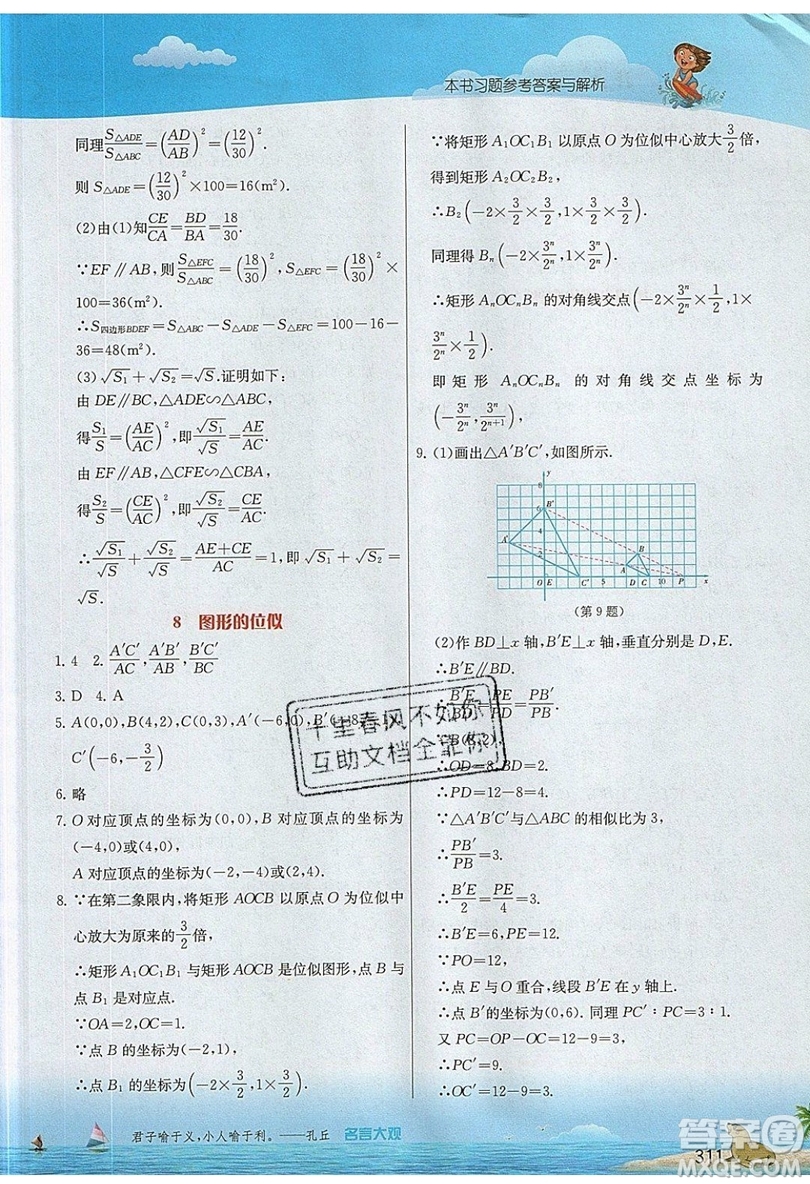 本书习题参考答案与解析
同理S△ADE/S△ABC=(AD/AB)²=(12/30)².
则 S△ADE=(12/30)²×100=16(m²).
(2)由(1)知CE/CA=BD/BA=18/30.
∵EF∥AB,则S△EFC/S△ABC=(18/30)²,S△EFC=(18/30)²×
100=36(m²).
∴S四边形BDEF=S△ABC-S△ADE-S△EFC=100-16-
36=48(m²).
(3)√S₁+√S₂=√S.证明如下:
由 DE∥BC,△ADE∽△ABC,
得S₁/S=(AE/AC)²,即√S₁/√S=AE/AC.
由 EF∥AB,△CFE∽△CBA,
得S₂/S=(CE/AC)²,即√S₂/√S=CE/AC.
∴√S₁/√S+√S₂/√S=(AE+CE)/AC=1,即√S₁+√S₂=
√S.
8 图形的位似
1. 4 2. A′C′/AC,A′B′/AB,B′C′/BC
3. D 4. A
5. A(0,0),B(4,2),C(0,3),A′(-6,0),
C′(-6,-3/2)
6. 略
7. O 对应顶点的坐标为(0,0),B 对应顶点的坐标为
(-4,0)或(4,0),
A 对应顶点的坐标为(-2,-4)或(2,4).
8. ∵在第二象限内,将矩形 AOCB 以原点 O 为位似中
心放大为原来的3/2倍,
∴矩形 A₁OC₁B₁ 与矩形 AOCB 是位似图形,点 B 与
点 B₁ 是对应点.
∵OA=2,OC=1.
∵点 B 的坐标为(-2,1),
∴点 B₁ 的坐标为(-2×3/2,1×3/2).
∵将矩形 A₁OC₁B₁ 以原点 O 为位似中心放大3/2倍,
得到矩形 A₂OC₂B₂,
∴B₂(-2×3/2×3/2,1×3/2×3/2).
同理得 Bₙ(-2×3ⁿ/2ⁿ,1×3ⁿ/2ⁿ).
∴矩形 AₙOCₙBₙ 的对角线交点(-2×3ⁿ/2ⁿ×1/2,1×
3ⁿ/2ⁿ×1/2).
即矩形 AₙOCₙBₙ 的对角线交点坐标为
(-3ⁿ/2ⁿ,3ⁿ/2ⁿ⁺¹),
9. (1)画出△A′B′C′,如图所示.
y
8
6 B′
4
A′
2 B
A
O E C′ 5 D C 10 P x
(第 9 题)
(2)作 BD⊥x 轴,B′E⊥x 轴,垂直分别是 D,E.
∴B′E∥BD.
∴B′E/BD=PE/PD=PB′/PB.
∵B(8,2).
∴OD=8.
∴PD=12-8=4.
∵△A′B′C′与△ABC 的相似比为 3,
∴PB′/PB=3.
∴B′E/2=PE/4=3.
∴B′E=6,PE=12.
∵PO=12,
∴点 E 与 O 重合,线段 B′E 在 y 轴上.
∴点 B′的坐标为(0,6). 同理 PC′∶PC=3∶1.
又 PC=OP-OC=12-9=3,
∴PC′=9.
∴OC′=12-9=3.
千里春风不如你
互助文档全靠你
君子喻于义,小人喻于利。——孔丘 名言大观
311
答案圈
MXQE.COM